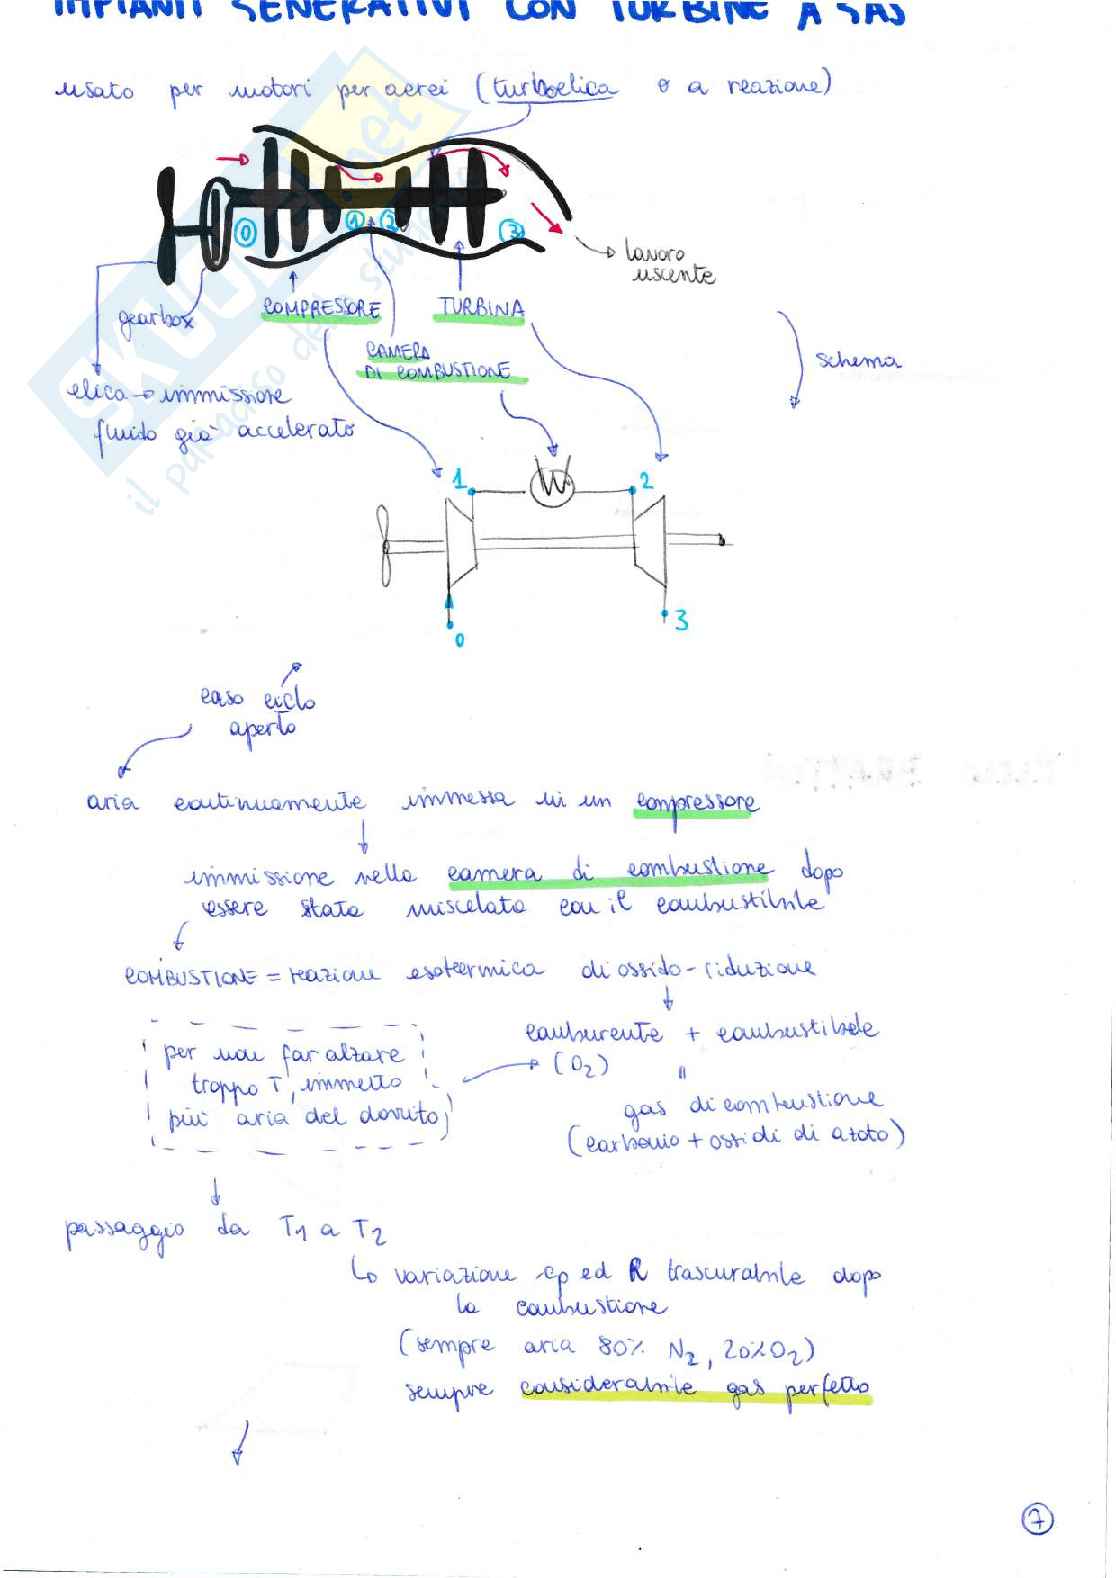 IMPIANTI GENERATIVI CON TURBINE A GAS
usato per motori per aerei (turboelica o a reazione)
0
1
2
3
lavoro
uscente
gearbox
COMPRESSORE
TURBINA
CAMERA
DI COMBUSTIONE
schema
elica → immissione
fluido già accelerato
1
2
0
3
caso ciclo
aperto
aria continuamente immessa in un compressore
immissione nella camera di combustione dopo
essere stata miscelata con il combustibile
COMBUSTIONE = reazione esotermica di ossido-riduzione
comburente + combustibile
(O2)
=
per non far alzare
troppo T, immetto
più aria del dovuto
gas di combustione
(carbonio + ossidi di azoto)
passaggio da T1 a T2
↳ variazione cp ed R trascurabile dopo
la combustione
(sempre aria 80% N2, 20% O2)
sempre considerabile gas perfetto
7
skuola.net
il paradiso dello studente